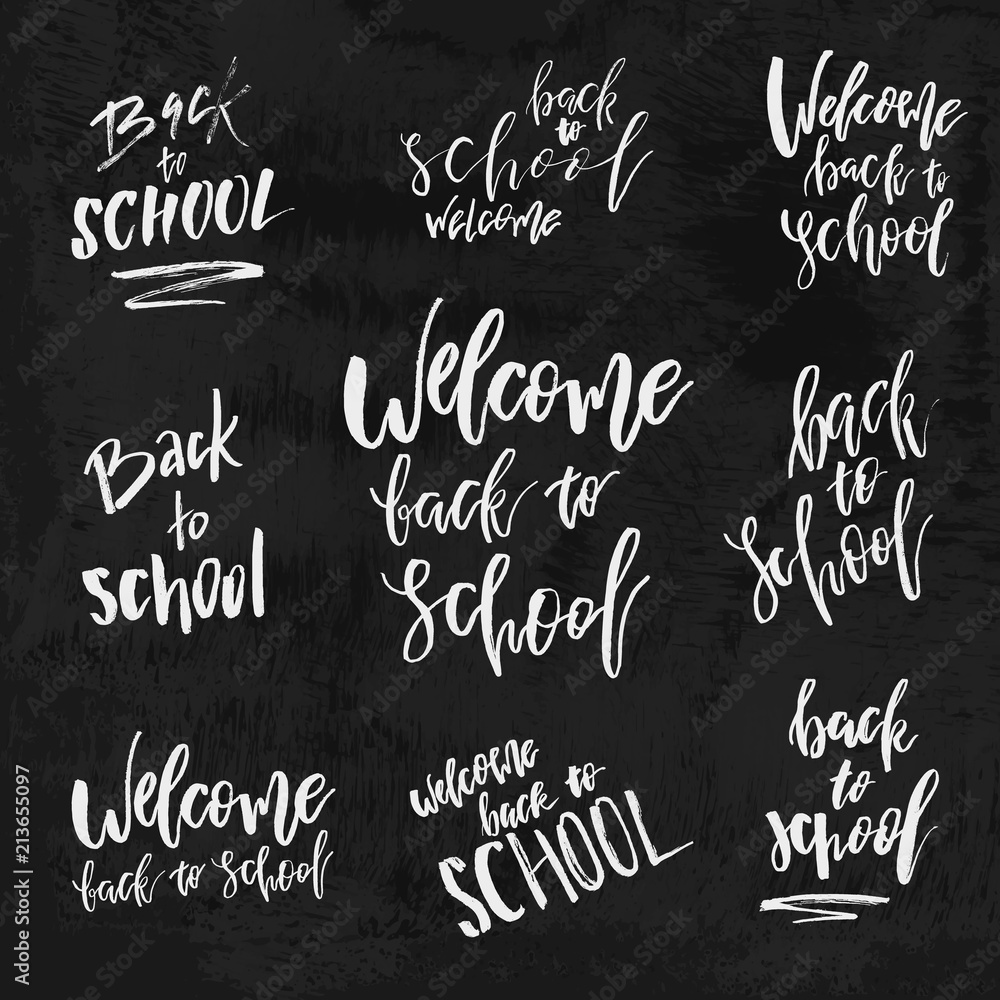 Back
to
SCHOOL
back
to
school
welcome
Welcome
back to
school
Back
to
school
Welcome
back to
school
back
to
school
Welcome
back to school
welcome
back to
SCHOOL
back
to
school
Adobe Stock | #213655097